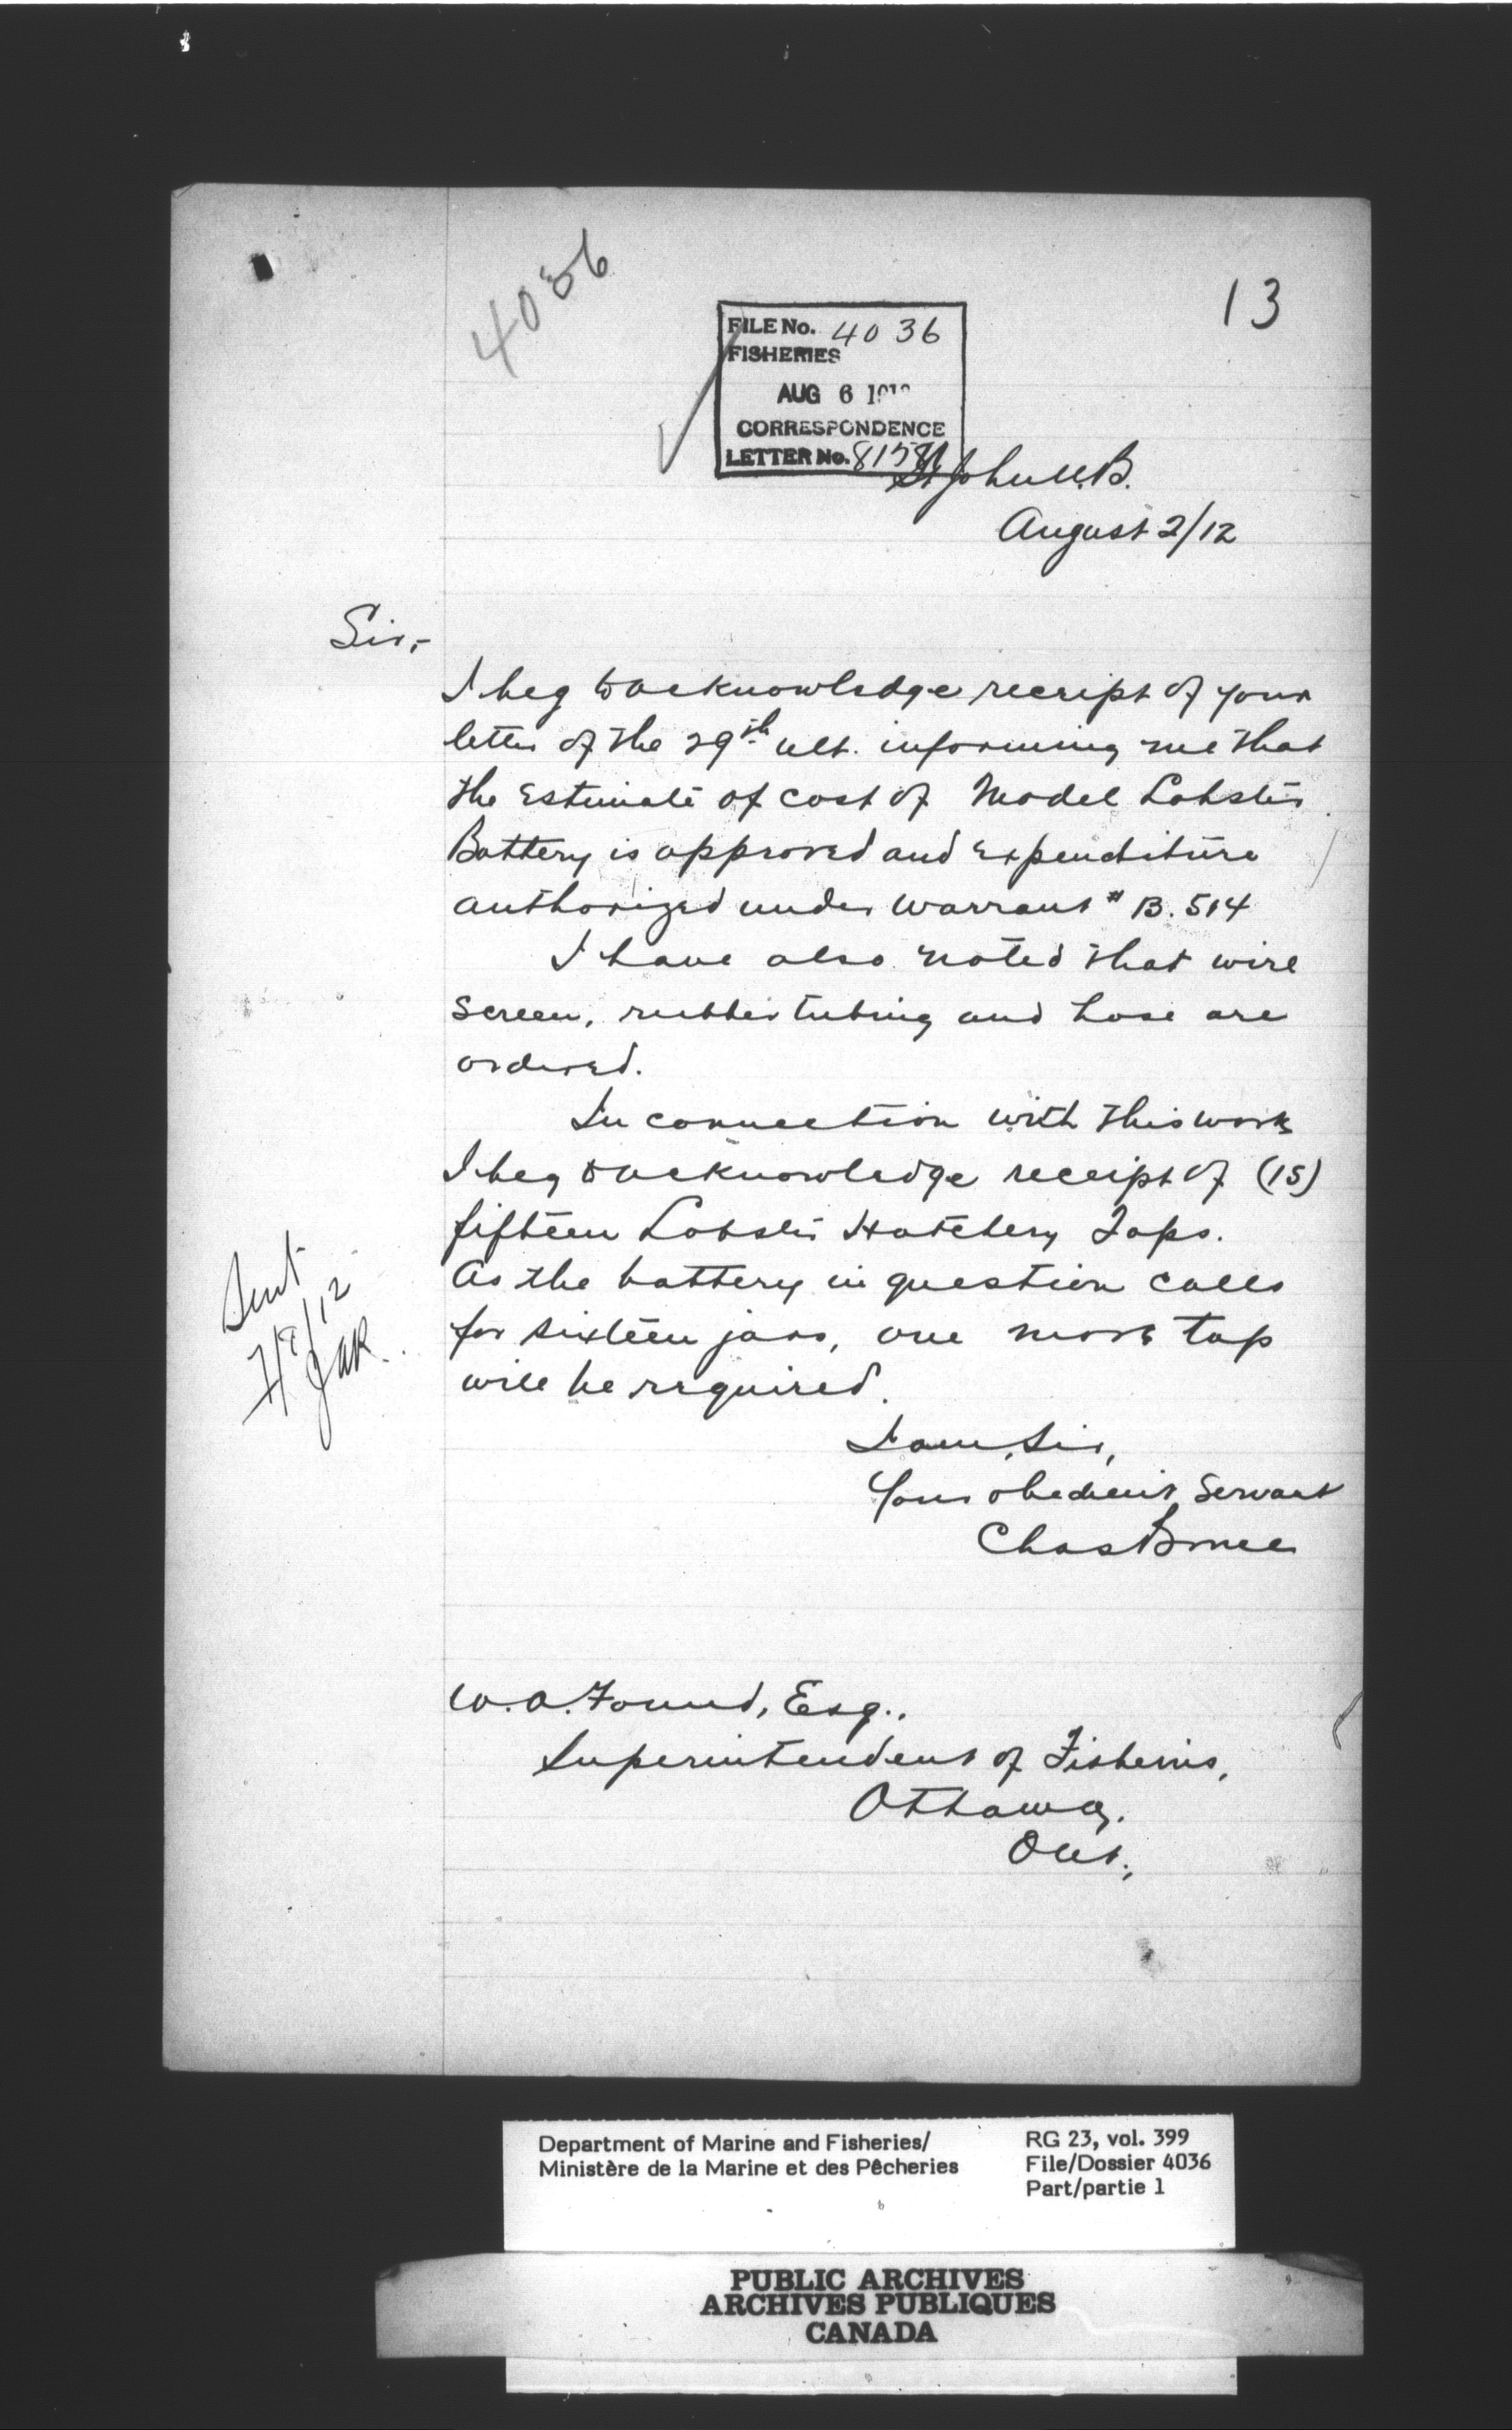 4036
13
FILE No. 4036
FISHERIES
AUG 6 191
CORRESPONDENCE
LETTER No.
St John N.B.
August 2/12
Sir,-
I beg to acknowledge receipt of your
letter of the 29th ult. informing me that
the estimate of cost of Model Lobster
Battery is approved and expenditure
authorized under Warrant # B. 514
I have also noted that wire
screen, rubber tubing and hose are
ordered.
In connection with this work
I beg to acknowledge receipt of (15)
fifteen Lobster Hatchery Taps.
As the battery in question calls
for sixteen jars, one more tap
will be required.
Sent
I am, Sir,
Your obedient servant
Chas Bruce
W.A. Found, Esq.,
Superintendent of Fisheries,
Ottawa,
Ont.,
Department of Marine and Fisheries/
Ministère de la Marine et des Pêcheries
RG 23, vol. 399
File/Dossier 4036
Part/partie 1
PUBLIC ARCHIVES
ARCHIVES PUBLIQUES
CANADA